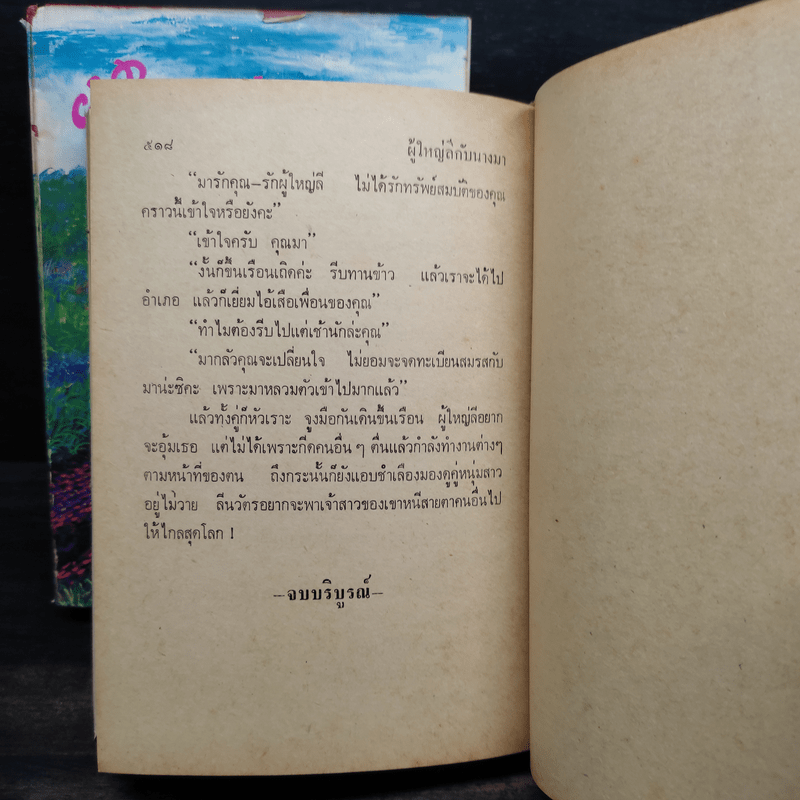 ๕๑๘ ผู้ใหญ่ลีกับนางมา
“มารักคุณ–รักผู้ใหญ่ลี ไม่ได้รักทรัพย์สมบัติของคุณ
คราวนี้เข้าใจหรือยังคะ”
“เข้าใจครับ คุณมา”
“งั้นก็ขึ้นเรือนเถิดค่ะ รีบทานข้าว แล้วเราจะได้ไป
อำเภอ แล้วก็เยี่ยมไอ้เสือเพื่อนของคุณ”
“ทำไมต้องรีบไปแต่เช้านักล่ะคุณ”
“มากลัวคุณจะเปลี่ยนใจ ไม่ยอมจะจดทะเบียนสมรสกับ
มาน่ะซิคะ เพราะมาหลวมตัวเข้าไปมากแล้ว”
แล้วทั้งคู่ก็หัวเราะ จูงมือกันเดินขึ้นเรือน ผู้ใหญ่ลีอยาก
จะอุ้มเธอ แต่ไม่ได้เพราะกีดคนอื่น ๆ ตื่นแล้วกำลังทำงานต่างๆ
ตามหน้าที่ของตน ถึงกระนั้นก็ยังแอบชำเลืองมองดูคู่หนุ่มสาว
อยู่ไม่วาย ลีนวัตรอยากจะพาเจ้าสาวของเขาหนีสายตาคนอื่นไป
ให้ไกลสุดโลก !
–จบบริบูรณ์–